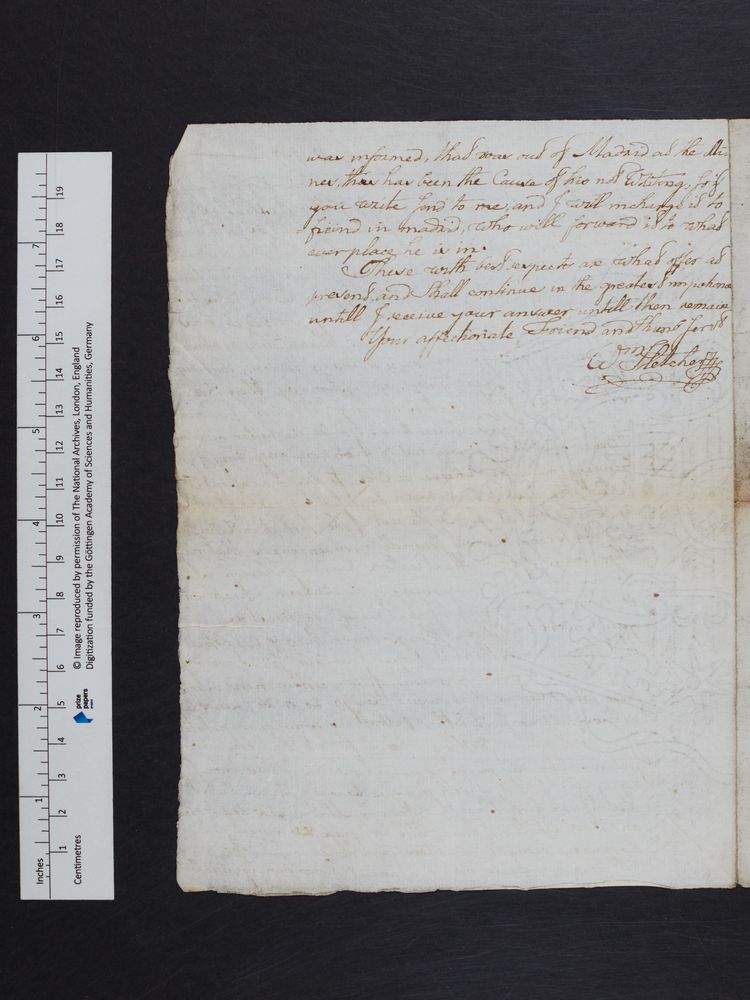 was informed, that was out of Madrid at the Mi-
nes, this has been the Cause of his not Writing, so if
you write send to me, and I will incharge it to
freind in madrid, who will forward it to what
ever place he is in.
These with best respects are what offer at
present, and Shall continue in the greatest impatience
untill I receive your answer untill then remain
Your affectionate Freind and thems for
Wm Fletcher
Inches
1 2 3 4 5 6 7
Centimetres
1 2 3 4 5 6 7 8 9 10 11 12 13 14 15 16 17 18 19
prize
papers
© Image reproduced by permission of The National Archives, London, England
Digitization funded by the Göttingen Academy of Sciences and Humanities, Germany